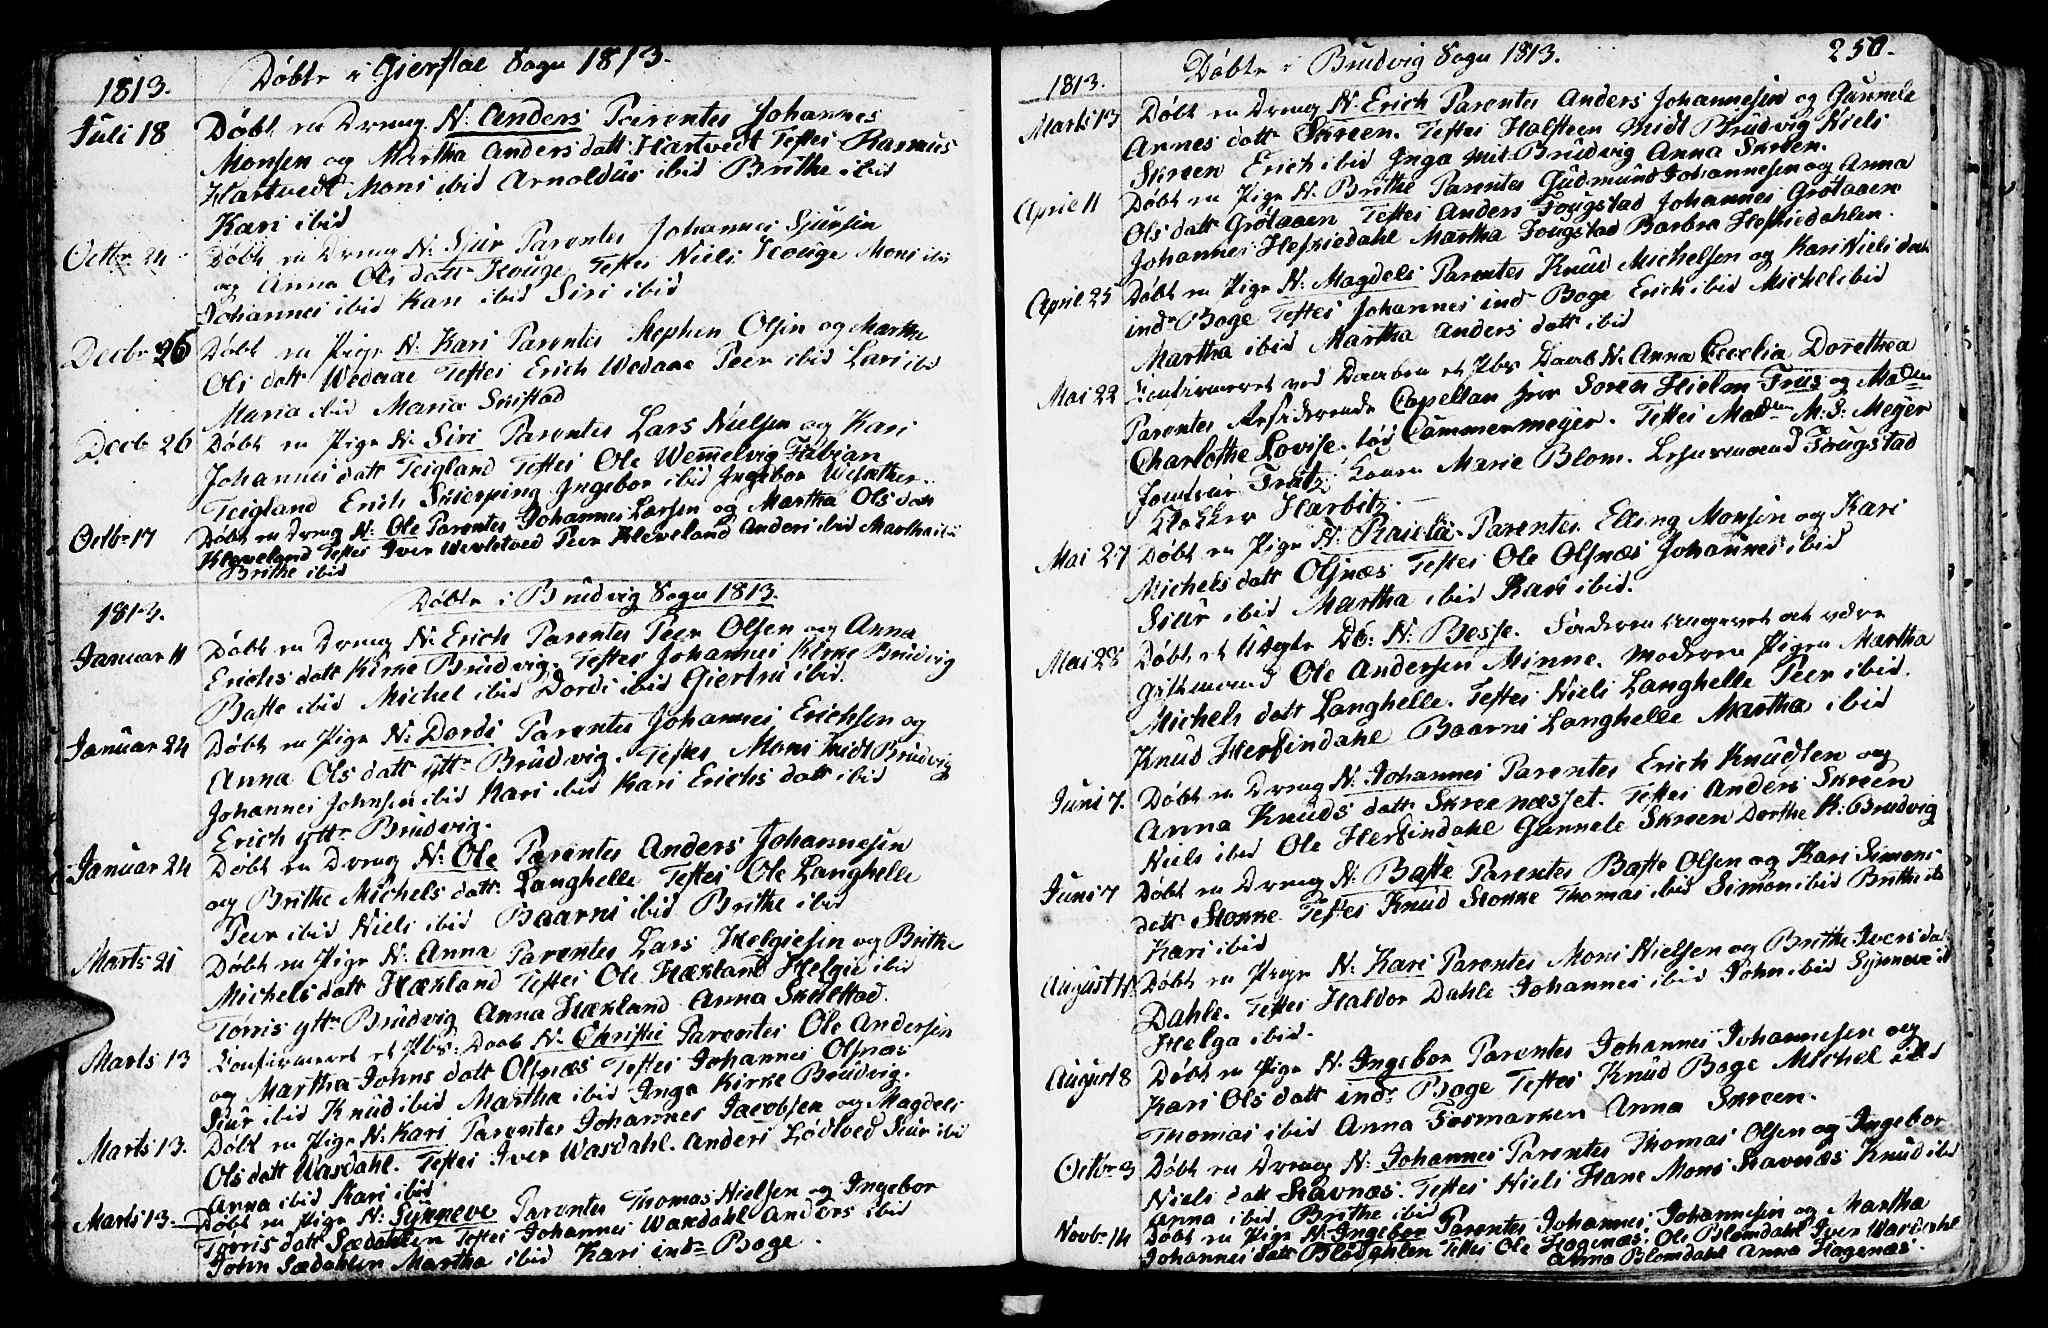 Døbte i Gierstae Sogn 1813.
1813.
Juli 18 Døbt en Dreng N: Anders Parentes Johannes
Monsen og Martha Andersdatt: Hartvedt Testes Rasmus
Hartvedt Mons ibid Arnoldus ibid Brithe ibid
Kari ibid
Octbr 24 Døbt en Dreng N: Sjur Parentes Johannes Sjursen
og Anna Ols datt Houge Testes Niels Houge Mons ibi
Johannes ibid Kari ibid Siri ibid
Decbr 26 Døbt en Pige N: Kari Parentes Stephen Olsen og Marthe
Ols datt Wedaae Testes Erich Wedaae Peer ibid Lars ibd
Maria ibid Maria Skistad
Decb 26 Døbt en Pige N: Siri Parentes Lars Nielsen og Kari
Johannes datt Teigland Testes Ole Wemmelvig Fabian
Teigland Erich Skierping Ingebor ibid Ingebor Wesæther
Octbr 17 Døbt en Dreng N: Ole Parentes Johannes Larsen og Martha Ols datt
Kleveland Testes Iver Wevletved Peer Kleveland Anders ibid Martha ibi
Brithe ibid
Døbte i Brudvig Sogn 1813.
1813.
Januar 11 Døbt en Dreng N: Erich Parentes Peer Olsen og Anna
Erichs datt Kirke Brudvig. Testes Johannes Kirke Brudvig
Baste ibid Michel ibid Dordi ibid Giertru ibid.
Januar 24 Døbt en Pige N: Dordi Parentes Johannes Erichsen og
Anna Ols datt yttr Brudvig. Testes Mons Midt Brudvig
Johannes Johnsen ibid Kari ibid Kari Erichs datt ibid
Erich yttr Brudvig.
Januar 24 Døbt en Dreng N: Ole Parentes Anders Johannesen
og Brithe Michels datt: Langhelle Testes Ole Langhelle
Peer ibid Niels ibid Baarni ibid Brithe ibid
Marts 21 Døbt en Pige N: Anna Parentes Lars Helgiesen og Brithe
Michels datt Hækland Testes Ole Hækland Helgie ibid
Torris yttr Brudvig Anna Hækland Anna Skulstad.
Marts 13 Confirmeret et Pbs: Daab N: Christie Parentes Ole Andersen
og Martha Johns datt Olsnæs Testes Johannes Olsnæs
Siur ibid Knud ibid Martha ibid Inga Kirke Brudvig.
Marts 13. Døbt en Pige N: Kari Parentes Johannes Jacobsen og Magdeli
Ols datt Wardahl. Testes Iver Wardahl. Anders Lødtved Siur ibi
Anna ibid Kari ibid
Marts 13. Døbt en Pige N: Synneve Parentes Thomas Nielsen og Ingebor
Torris datt Sædahlen Testes Johannes Waxdahl Anders ibid
John Sædahlen Martha ibid Kari indr Boge.
Døbte i Brudvig Sogn 1813.
250.
1813.
Marts 13 Døbt en Dreng N: Erich Parentes Anders Johannesen og Gunnele
Annes datt Skreen. Testes Halsteen Midt Brudvig Niels
Skreen Erich ibid Inga Mit Brudvig Anna Skreen.
April 11 Døbt en Pige N: Brithe Parentes Gudmund Johannesen og Anna
Ols datt Grotaaen Testes Anders Fougstad Johannes Grotaaen
Johannes Hesriedahl Martha Fougstad Barbra Hesriedahlen.
April 25 Døbt en Pige N: Magdeli Parentes Knud Michelsen og Kari Niels datt
indr Boge Testes Johannes indr Boge Erich ibid Michel ibid
Martha ibid Martha Anders datt ibid
Mai 22 Confirmeret ved Daaben et Pbs Daab N: Anna Cecelia Dorethea
Parentes Residerende Capellan Herr Soren Hielm Friis og Madm
Charlothe Lovise fød Cammermeyer. Testes Madm M: S: Meyer
Jomfrue Marie Blom. Lehnsmand Fougstad
Klokker Harbitz.
Mai 27 Døbt en Pige N: Parentes Elling Monsen og Kari
Michels datt Olsnæs Testes Ole Olsnæs Johannes ibid
Siur ibid Martha ibid Kari ibid.
Mai 28 Døbt et Uægte Db: N: Besse. Faderen angivet at være
Giftmand Ole Andersen Minne. Moderen Pigen Martha
Michels datt Langhelle. Testes Niels Langhelle Peer ibid.
Knud Herfindahl Baarni Langhelle Martha ibid
Juni 7. Døbt en Dreng N: Johannes Parentes Erich Knudsen og
Anna Knuds datt Skreenesset. Testes Anders Skreen
Niels ibid Ole Herfindahl Gunnele Skreen Dorthe K: Brudvig
Juni 7 Døbt en Dreng N: Baste Parentes Baste Olsen og Kari Simons
datt Stokke. Testes Knud Stokke Thomas ibid Simon ibid Brithe ib
Kari ibid
August Døbt en Pige N: Kari Parentes Mons Nielsen og Brithe Ivers da
Dahle. Testes Haldor Dahle Johannes ibid John ibid Synneve i
Helga ibid.
August 8 Døbt en Pige N: Ingebor Parentes Johannes Johannesen og
Kari Ols datt indr Boge Testes Knud Boge Michel ibid
Thomas ibid Anna Fosmarken Anna Skreen.
Octbr 3 Døbt en Dreng N: Johannes Parentes Thomas Olsen og Ingebor
Niels datt Stavnæs. Testes Niels Hane Mons Stavnæs Knud ibid
Anna ibid Brithe ibid
Novbr 14 Døbt en Pige N: Ingebor Parentes Johannes Johannesen og Martha
Johannes datt Blodahlen Testes Ole Hagenæs. Ole Blomdahl Iver Wardahl
Anna Blomdahl Anna Hagenæs.